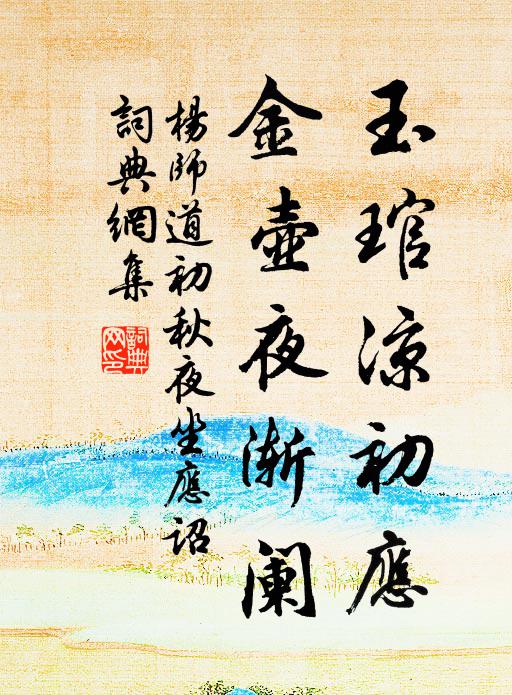 玉琯涼初應
金壺夜漸阑
楊師道初秋夜坐應詔
詞典網集
詞典網印